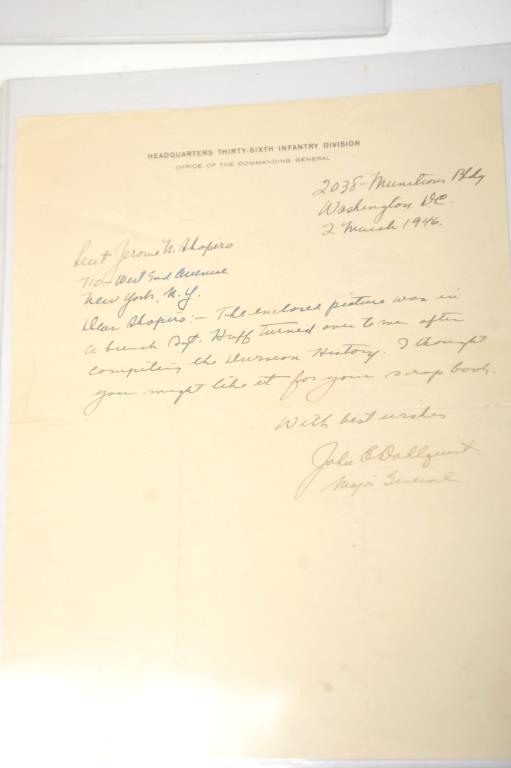 HEADQUARTERS THIRTY-SIXTH INFANTRY DIVISION
OFFICE OF THE COMMANDING GENERAL
2038-Munitions Bldg
Washington D.C.
2 March 1946.
Lieut Jerome N. Shapiro
710-West End Avenue
New York, N.Y.
Dear Shapiro:- The enclosed picture was in
a bunch Sgt. Huff turned over to me after
completing the Division History. I thought
you might like it for your scrap book.
With best wishes
John E Dahlquist
Major General